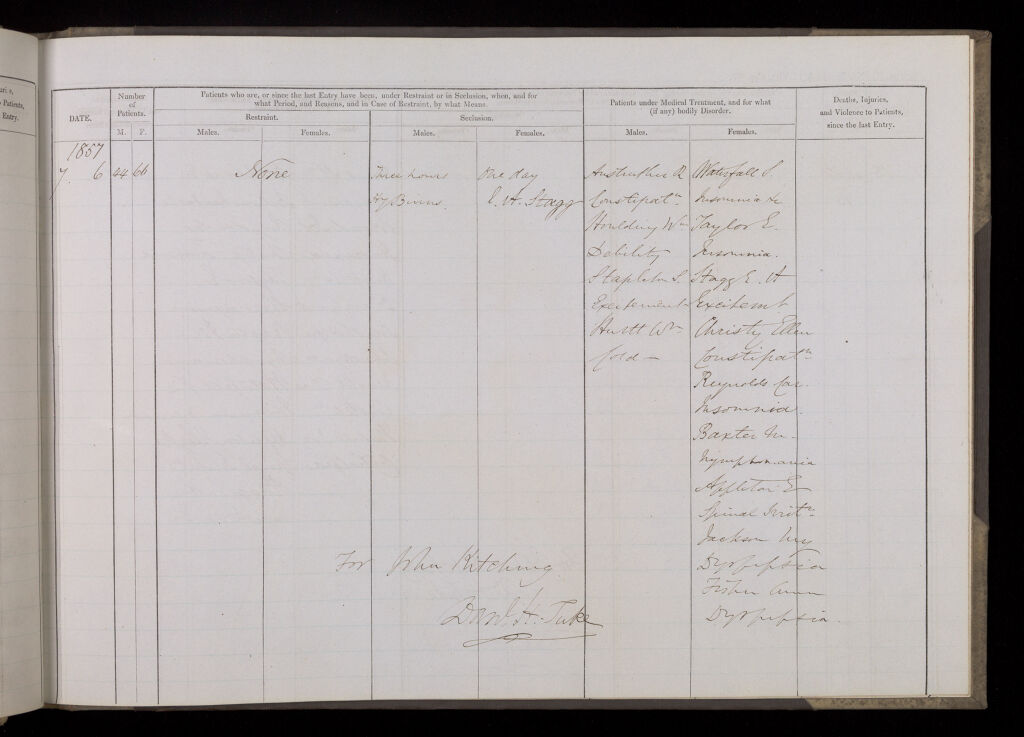 uries,
Patients,
Entry.
DATE.
Number
of
Patients.
M. F.
Patients who are, or since the last Entry have been, under Restraint or in Seclusion, when, and for
what Period, and Reasons, and in Case of Restraint, by what Means.
Restraint.
Seclusion.
Males.
Females.
Males.
Females.
Patients under Medical Treatment, and for what
(if any) bodily Disorder.
Males.
Females.
Deaths, Injuries,
and Violence to Patients,
since the last Entry.
1857
7 6 44 66
None
Three hours
Hy Burns.
One day
E. A. Stagg
Anstruther R
Constipatn
Houlding Wm
Debility
Stapleton S.
Excitement
Hustt Wm
Cold —
Waterfall S.
Insomnia &c
Taylor E.
Insomnia.
Stagg E. A
Excitemt
Christy Ellen
Constipatn
Reynolds Car.
Insomnia.
Baxter M.
Nymphomania
Appleton E
Spinal Irritn
Jackson My
Dyspepsia
Fisher Ann
Dyspepsia.
For John Kitching
Danl H. Tuke